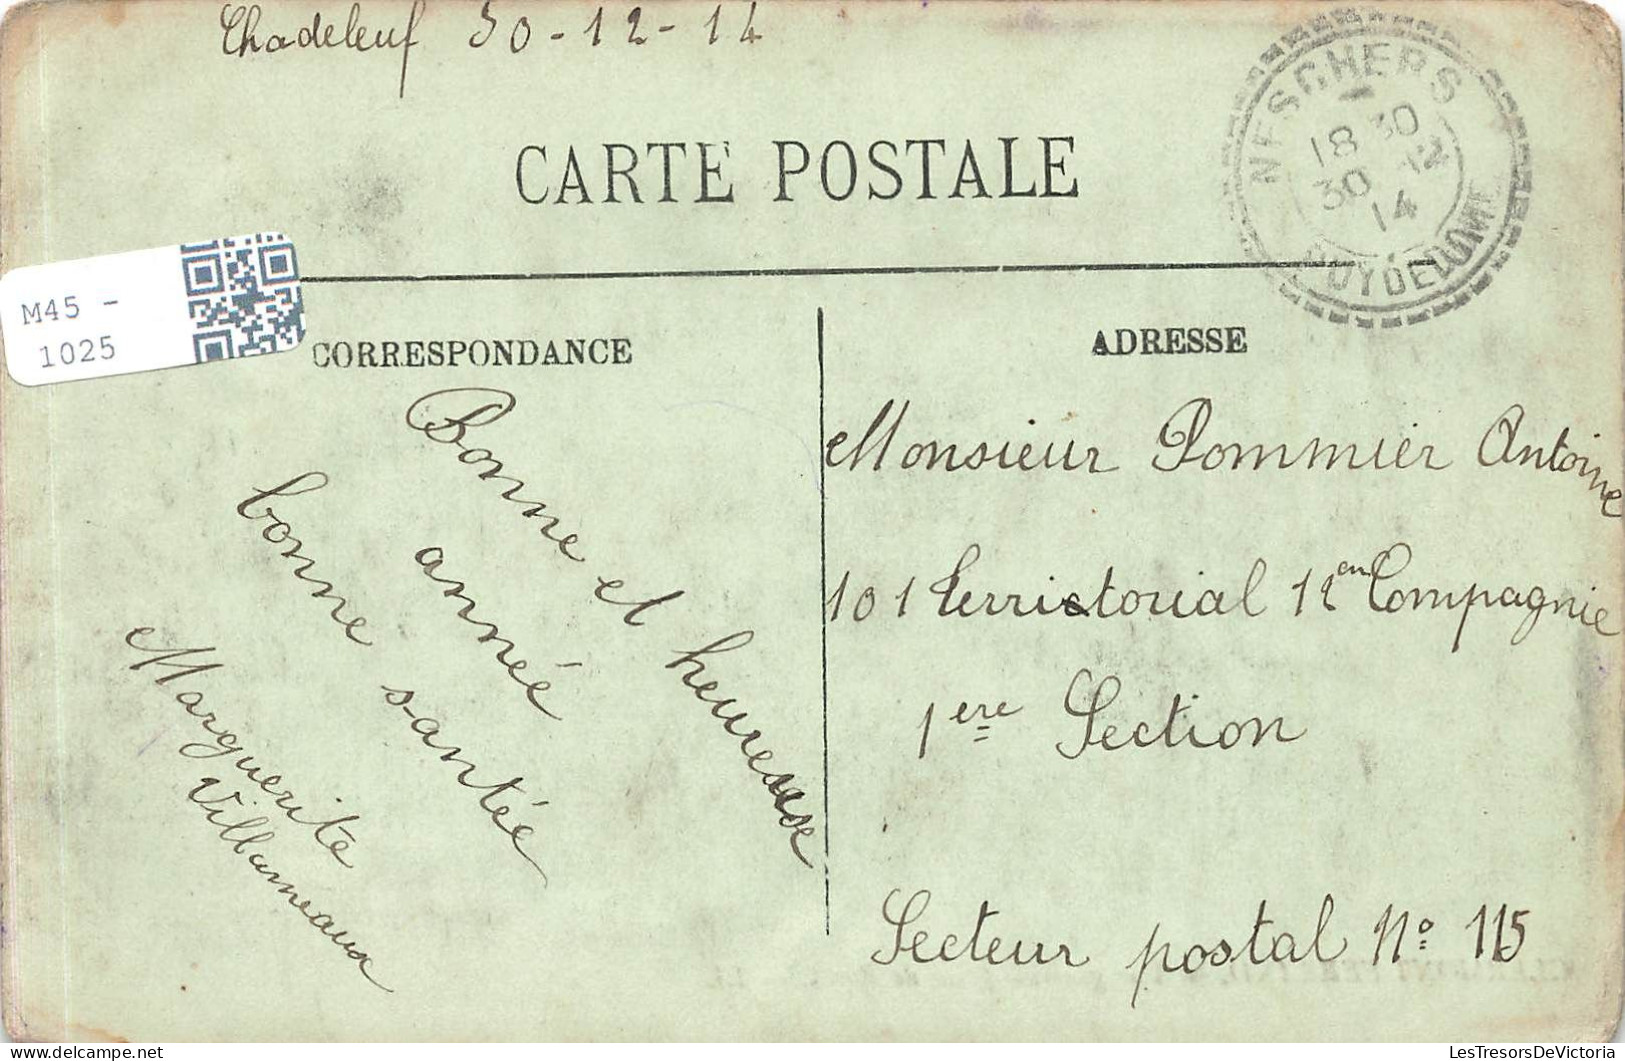 Chadeleuf 30-12-14
NESCHERS
18 30
30 12
14
PUY DE DOME
CARTE POSTALE
M45 -
1025
CORRESPONDANCE
ADRESSE
Bonne et heureuse
année
bonne santée
Marguerite
Villameaux
Monsieur Pommier Antoine
101 Terrictorial 12em Compagnie
1ere Section
Secteur postal No 115
LesTresorsDeVictoria